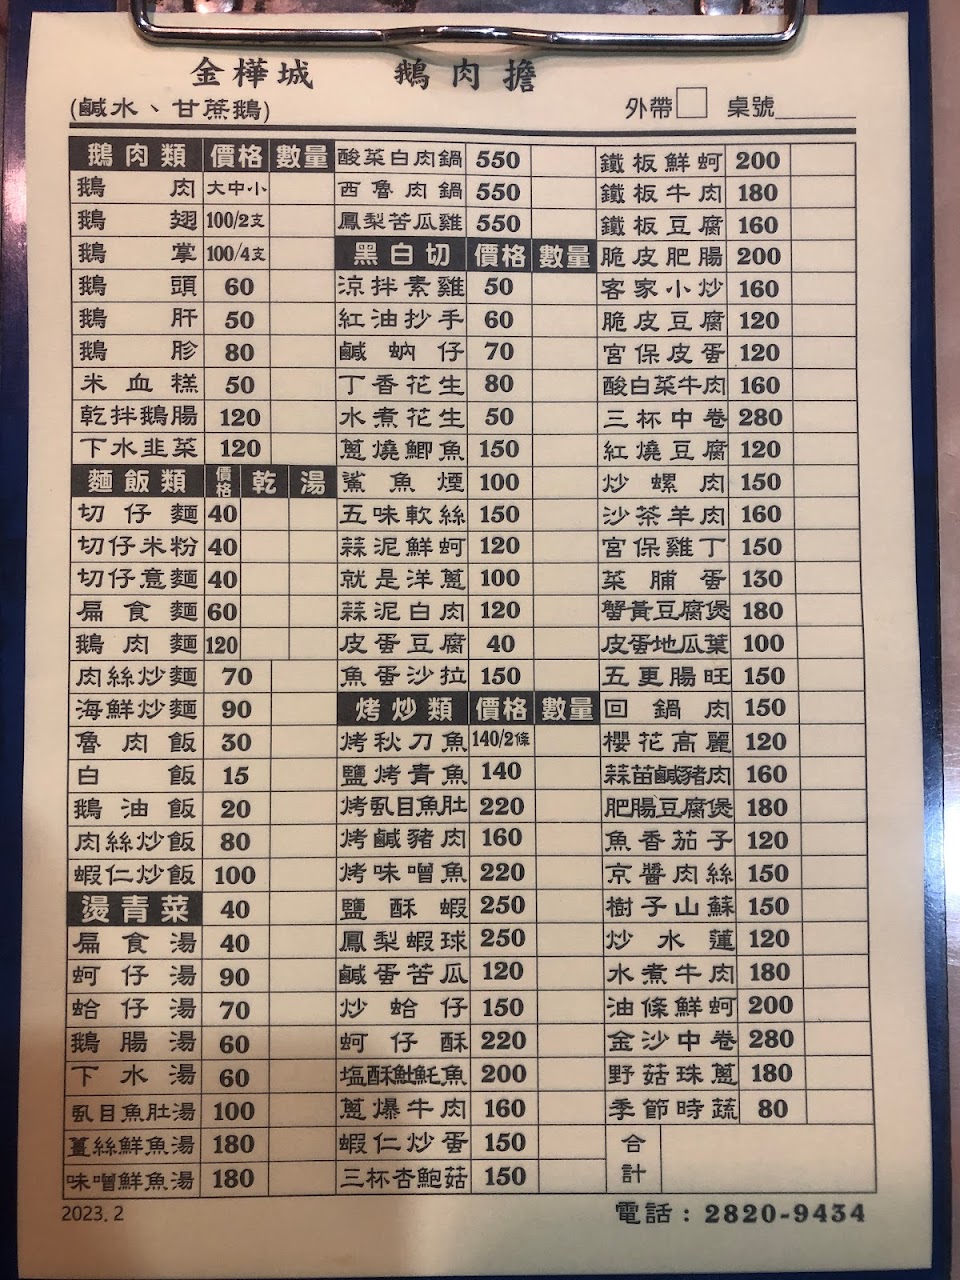 金樺城 鵝肉擔
(鹹水、甘蔗鵝)
外帶 桌號
鵝肉類 價格 數量
鵝肉 大中小
鵝翅 100/2支
鵝掌 100/4支
鵝頭 60
鵝肝 50
鵝胗 80
米血糕 50
乾拌鵝腸 120
下水韭菜 120
麵飯類 價格 乾 湯
切仔麵 40
切仔米粉 40
切仔意麵 40
扁食麵 60
鵝肉麵 120
肉絲炒麵 70
海鮮炒麵 90
魯肉飯 30
白飯 15
鵝油飯 20
肉絲炒飯 80
蝦仁炒飯 100
燙青菜 40
扁食湯 40
蚵仔湯 90
蛤仔湯 70
鵝腸湯 60
下水湯 60
虱目魚肚湯 100
薑絲鮮魚湯 180
味噌鮮魚湯 180
2023.2
酸菜白肉鍋 550
西魯肉鍋 550
鳳梨苦瓜雞 550
黑白切 價格 數量
涼拌素雞 50
紅油抄手 60
鹹蚋仔 70
丁香花生 80
水煮花生 50
蔥燒鯽魚 150
鯊魚煙 100
五味軟絲 150
蒜泥鮮蚵 120
就是洋蔥 100
蒜泥白肉 120
皮蛋豆腐 40
魚蛋沙拉 150
烤炒類 價格 數量
烤秋刀魚 140/2條
鹽烤青魚 140
烤虱目魚肚 220
烤鹹豬肉 160
烤味噌魚 220
鹽酥蝦 250
鳳梨蝦球 250
鹹蛋苦瓜 120
炒蛤仔 150
蚵仔酥 220
塩酥魠魚 200
蔥爆牛肉 160
蝦仁炒蛋 150
三杯杏鮑菇 150
鐵板鮮蚵 200
鐵板牛肉 180
鐵板豆腐 160
脆皮肥腸 200
客家小炒 160
脆皮豆腐 120
宮保皮蛋 120
酸白菜牛肉 160
三杯中卷 280
紅燒豆腐 120
炒螺肉 150
沙茶羊肉 160
宮保雞丁 150
菜脯蛋 130
蟹黃豆腐煲 180
皮蛋地瓜葉 100
五更腸旺 150
回鍋肉 150
櫻花高麗 120
蒜苗鹹豬肉 160
肥腸豆腐煲 180
魚香茄子 120
京醬肉絲 150
樹子山蘇 150
炒水蓮 120
水煮牛肉 180
油條鮮蚵 200
金沙中卷 280
野菇珠蔥 180
季節時蔬 80
合計
電話：2820-9434